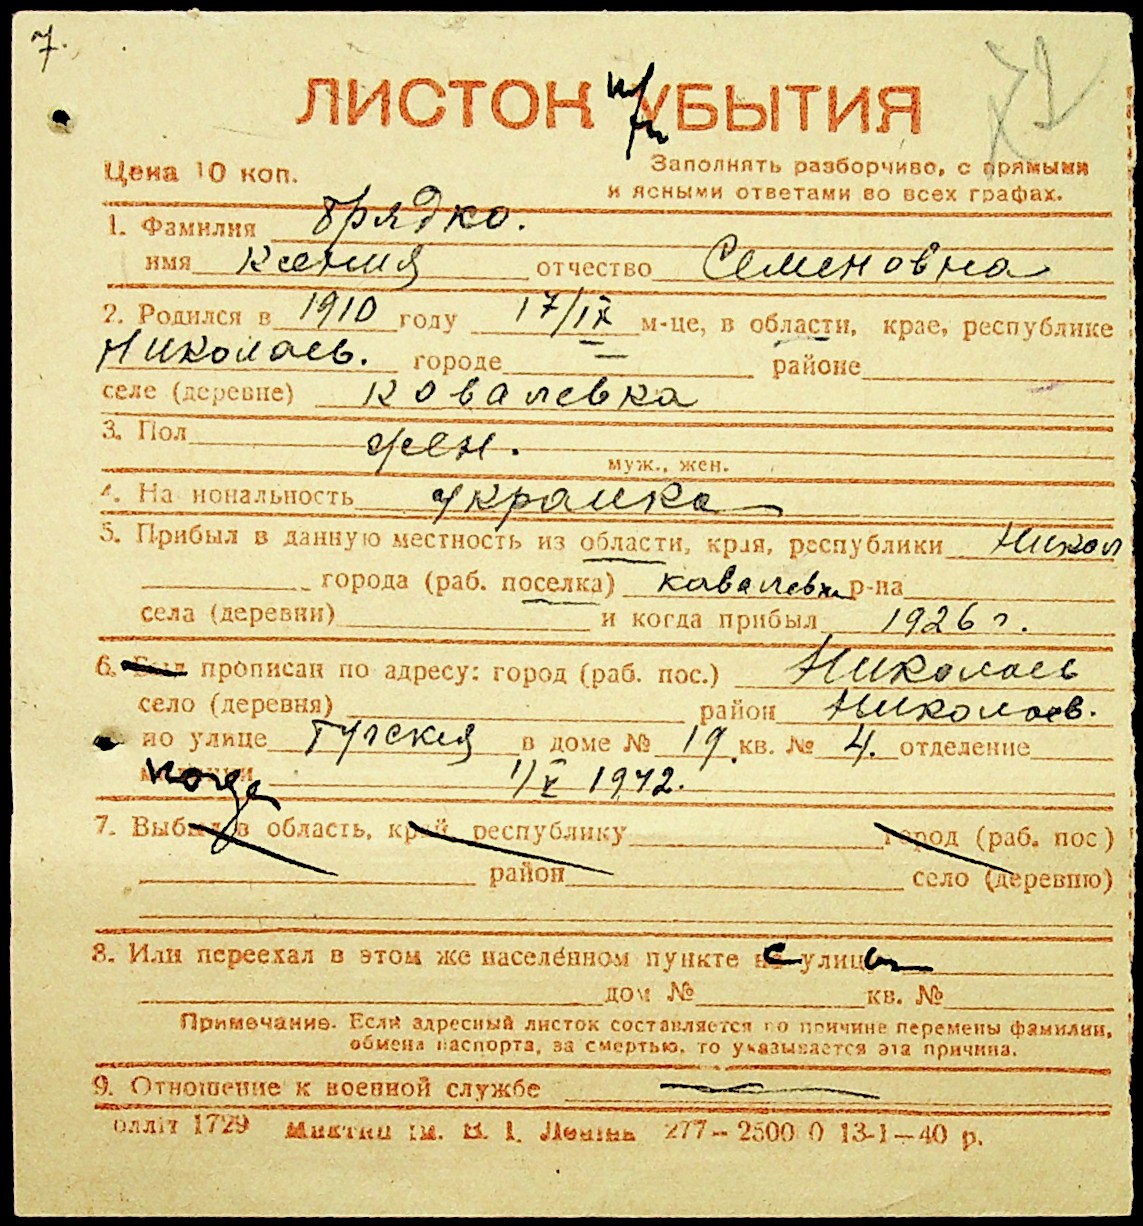 7.
ЛИСТОК УБЫТИЯ
при
Цена 10 коп.
Заполнять разборчиво, с прямыми
и ясными ответами во всех графах.
1. Фамилия Грядко.
имя Ксения отчество Семеновна
2. Родился в 1910 году 17/IX м-це, в области, крае, республике
Николаев. городе районе
селе (деревне) Ковалевка
3. Пол жен.
муж., жен.
4. Национальность украинка
5. Прибыл в данную местность из области, края, республики Никол
города (раб. поселка) Ковалевка р-на
села (деревни) и когда прибыл 1926 г.
6. Был прописан по адресу: город (раб. пос.) Николаев
село (деревня) район Николаев.
по улице в доме № 19 кв. № 4. отделение
милиции когда 1/V 1942.
7. Выбыл в область, край, республику город (раб. пос)
район село (деревню)
8. Или переехал в этом же населённом пункте с улицы
дом № кв. №
Примечание. Если адресный листок составляется по причине перемены фамилии,
обмена паспорта, за смертью, то указывается эта причина.
9. Отношение к военной службе
олліт 1729 Миктип ім. В. І. Леніна 277—2500 0 13-1—40 р.